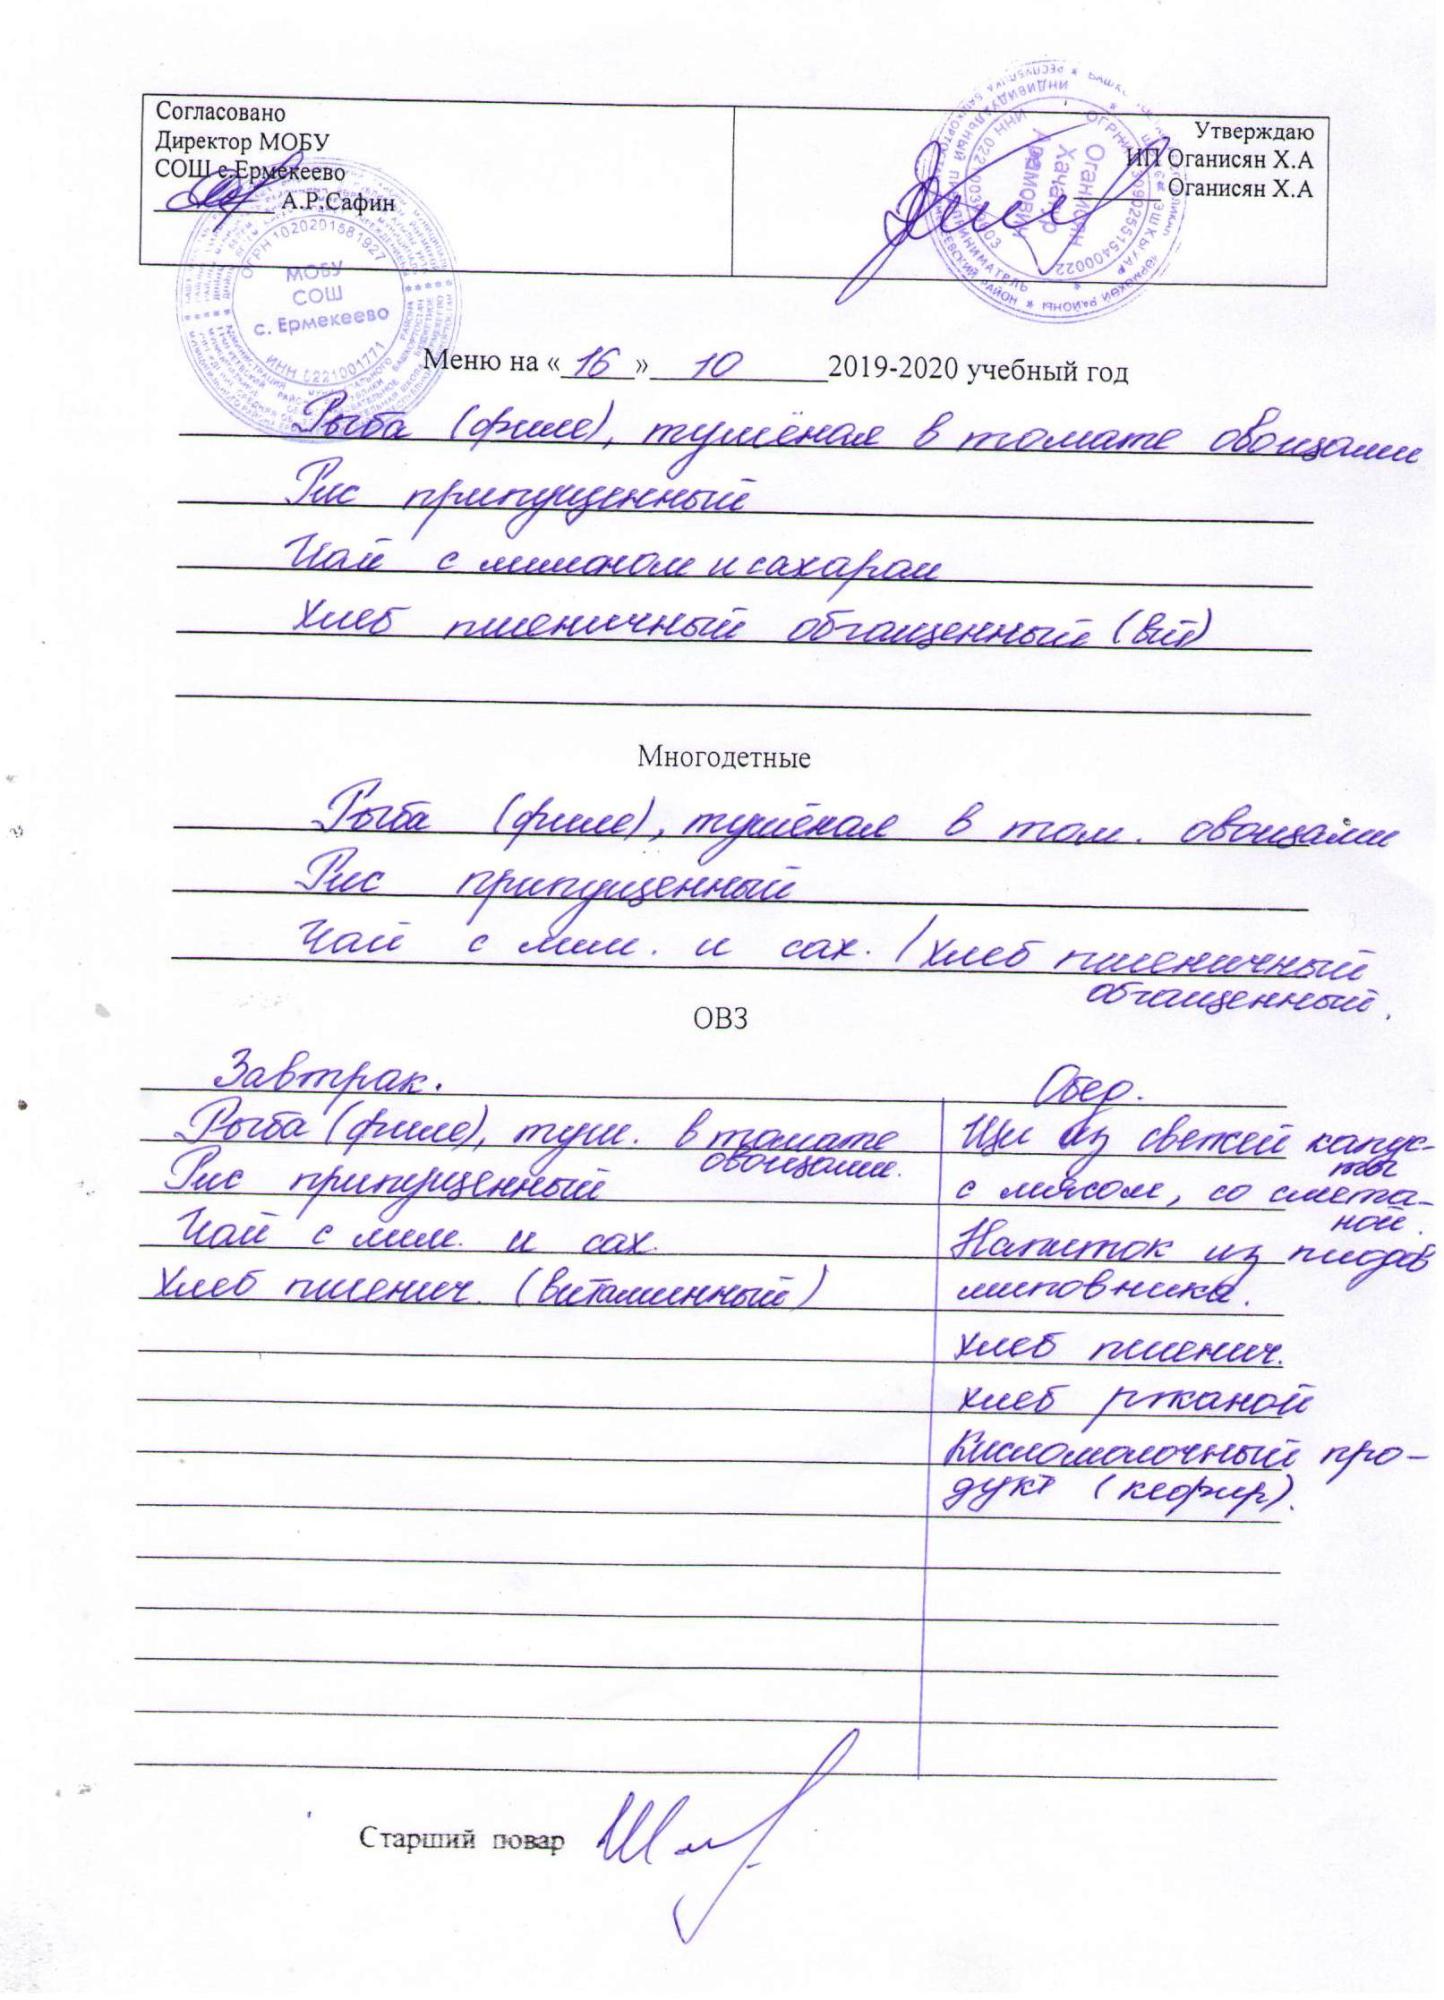 Согласовано
Директор МОБУ
СОШ с.Ермекеево
А.Р.Сафин
Утверждаю
ИП Оганисян Х.А
Оганисян Х.А
ОГРН 1020201581927
МОБУ
СОШ
с. Ермекеево
ИНН 0221001771
Оганисян
Хачатур
Меню на «16» 10 2019-2020 учебный год
Рыба (филе), тушёная в томате овощами
Рис припущенный
Чай с лимоном и сахаром
Хлеб пшеничный обгащенный (вит)
Многодетные
Рыба (филе), тушёная в том. овощами
Рис припущенный
Чай с лим. и сах. / Хлеб пшеничный
обгащенный.
ОВЗ
Завтрак.
Рыба (филе), туш. в томате
овощами.
Рис припущенный
Чай с лим. и сах.
Хлеб пшенич. (витаминный)
Обед.
Щи из свежей капус-
ты
с мясом, со смета-
ной.
Напиток из плодов
шиповника.
Хлеб пшенич.
Хлеб ржаной
Кисломолочный про-
дукт (кефир).
Старший повар